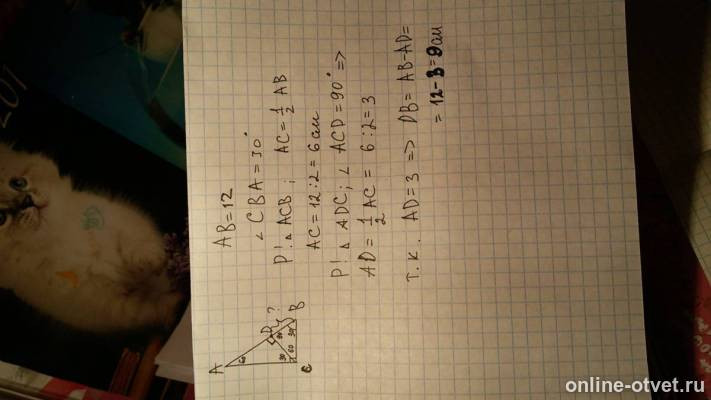 AB=12
∠CBA=30°
P! △ ACB; AC=1/2 AB
AC=12:2=6см
P! △ ADC; ∠ ACD=90° =>
AD=1/2 AC = 6:2=3
т.к. AD=3 => DB=AB-AD=
=12-3=9см
A
D
?
B
C
60
30
60
30
201
online-otvet.ru